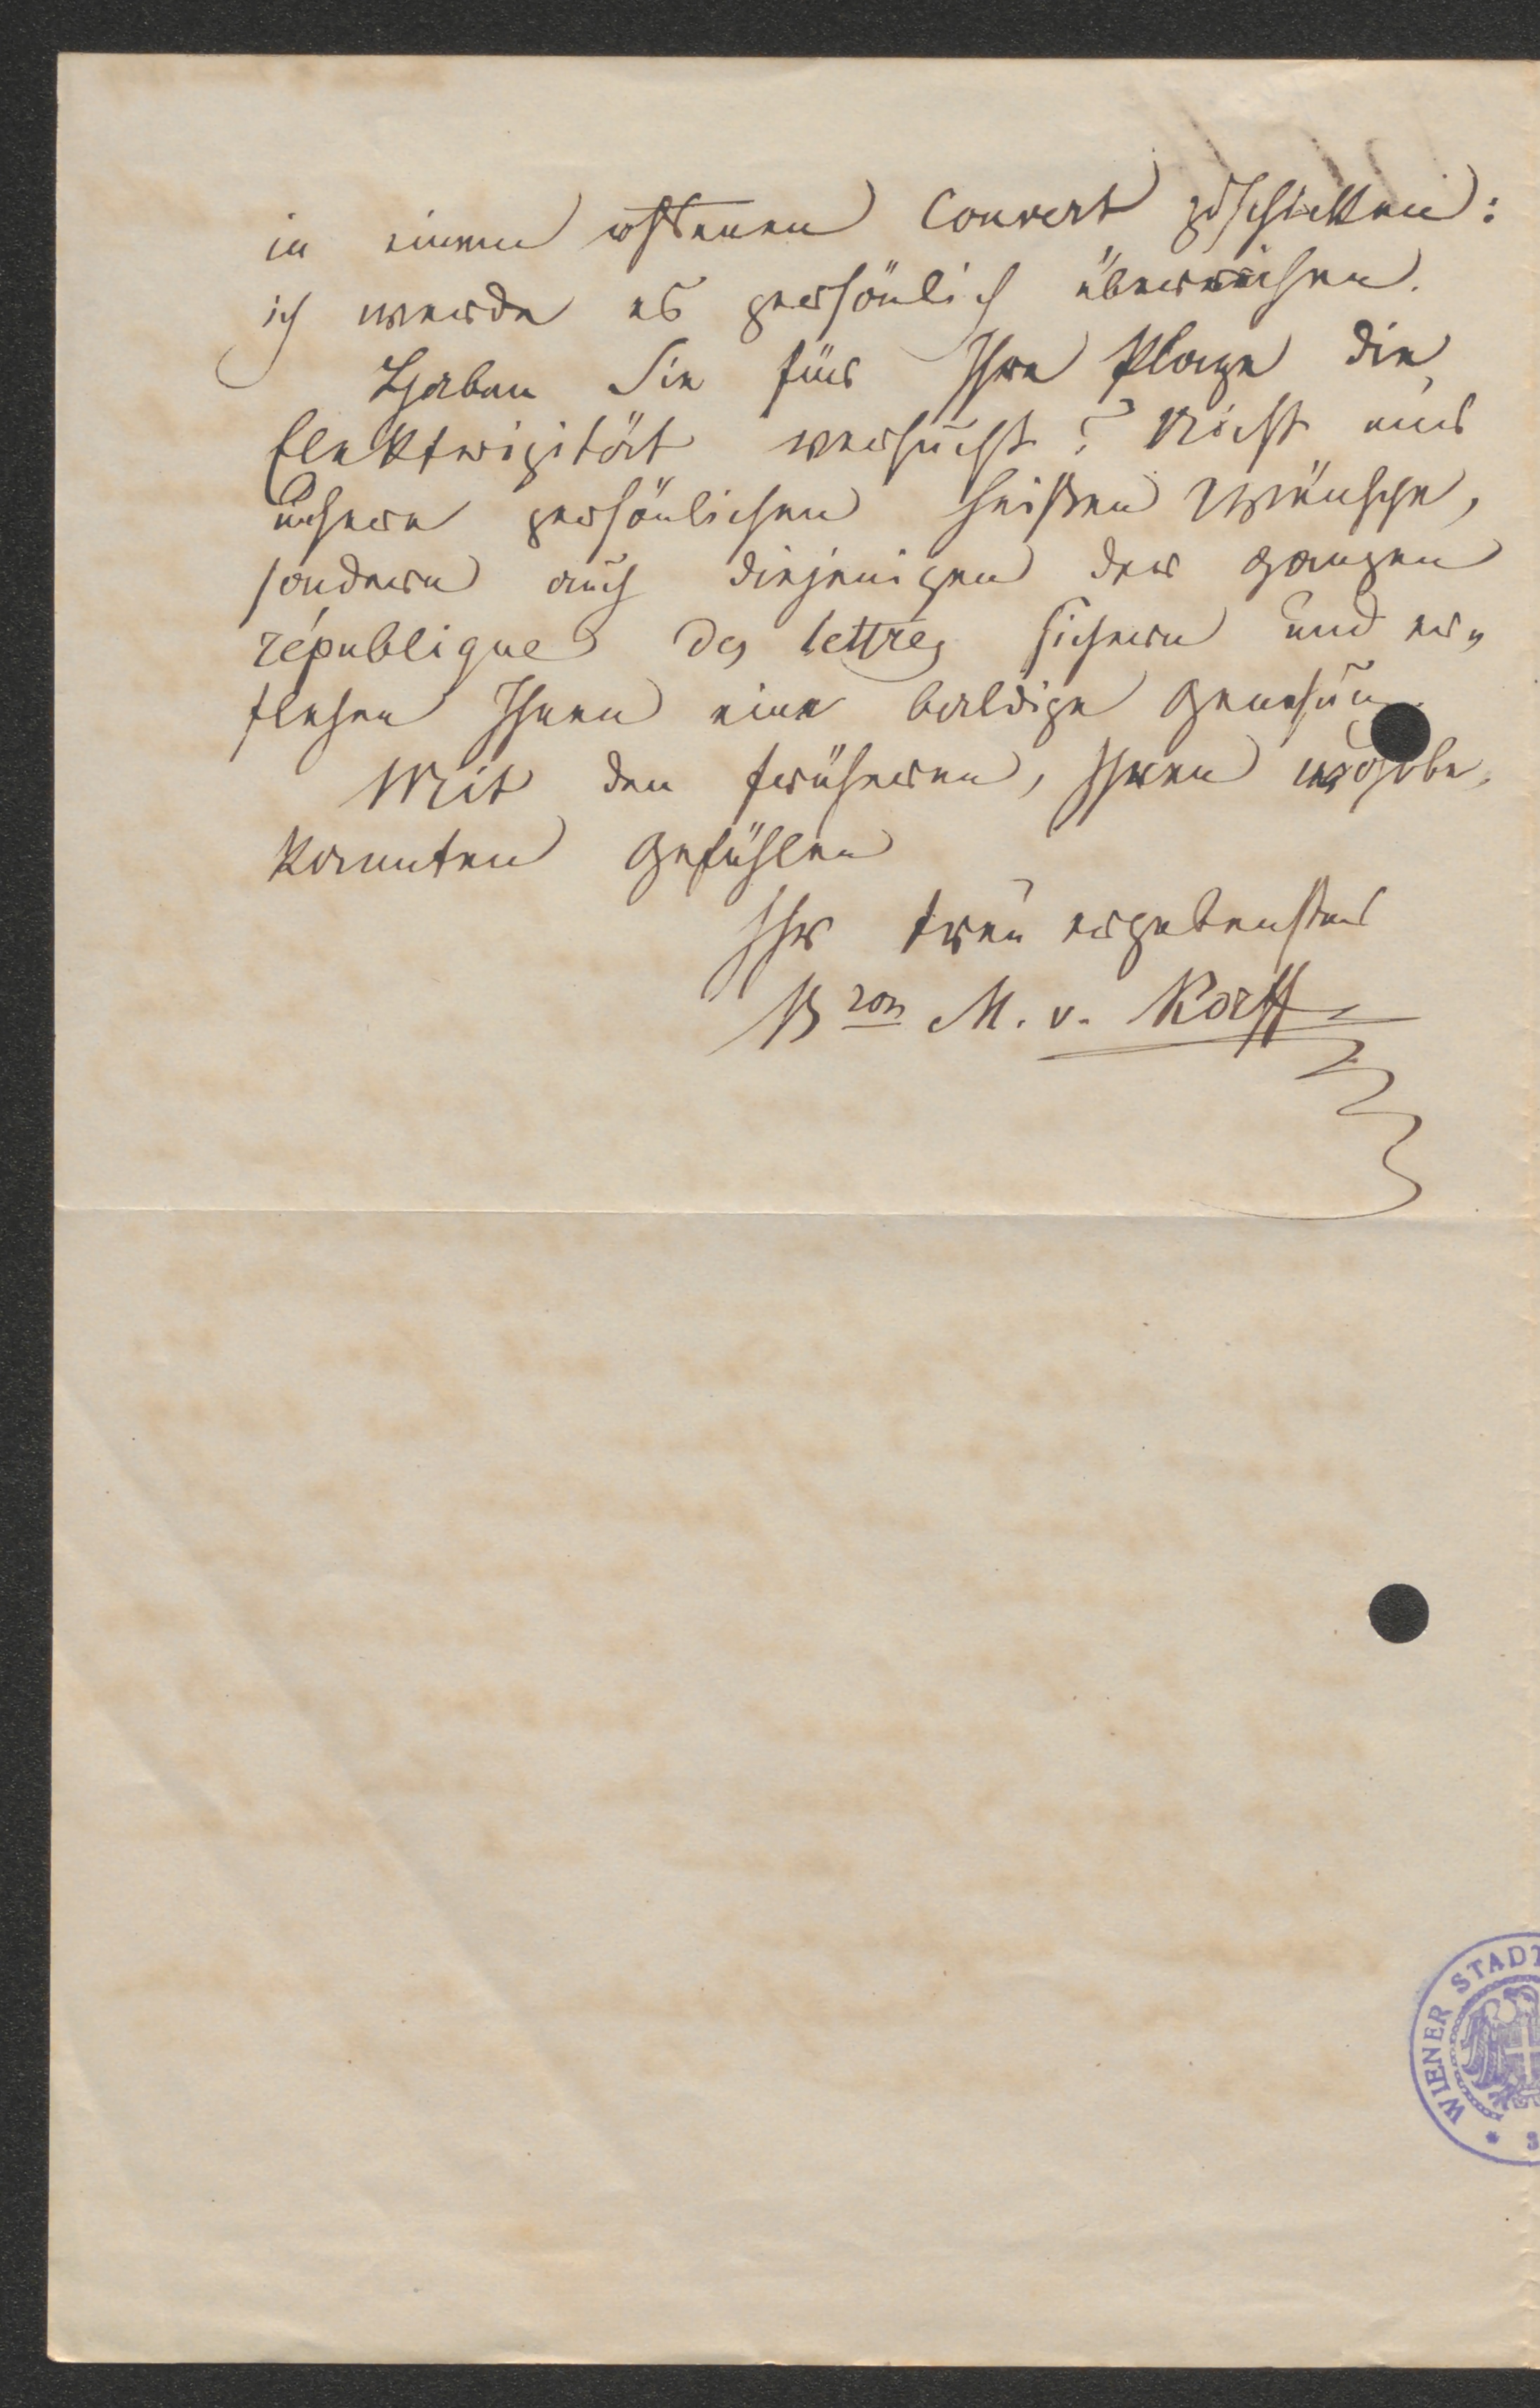 in einem offenen Couvert zuschicken:
ich werde es persönlich überreichen.
Haben Sie für Ihre Plage die
Elektrizität versucht? Nicht nur
unsere persönlichen heißen Wünsche,
sondern auch diejenigen der ganzen
république des lettres sichern und er„
flehen Ihnen eine baldige Genesung.
Mit den früheren, Ihnen wohlbe„
kannten Gefühlen
Ihr treu ergebenster
Bron M. v. Korff
WIENER STADT